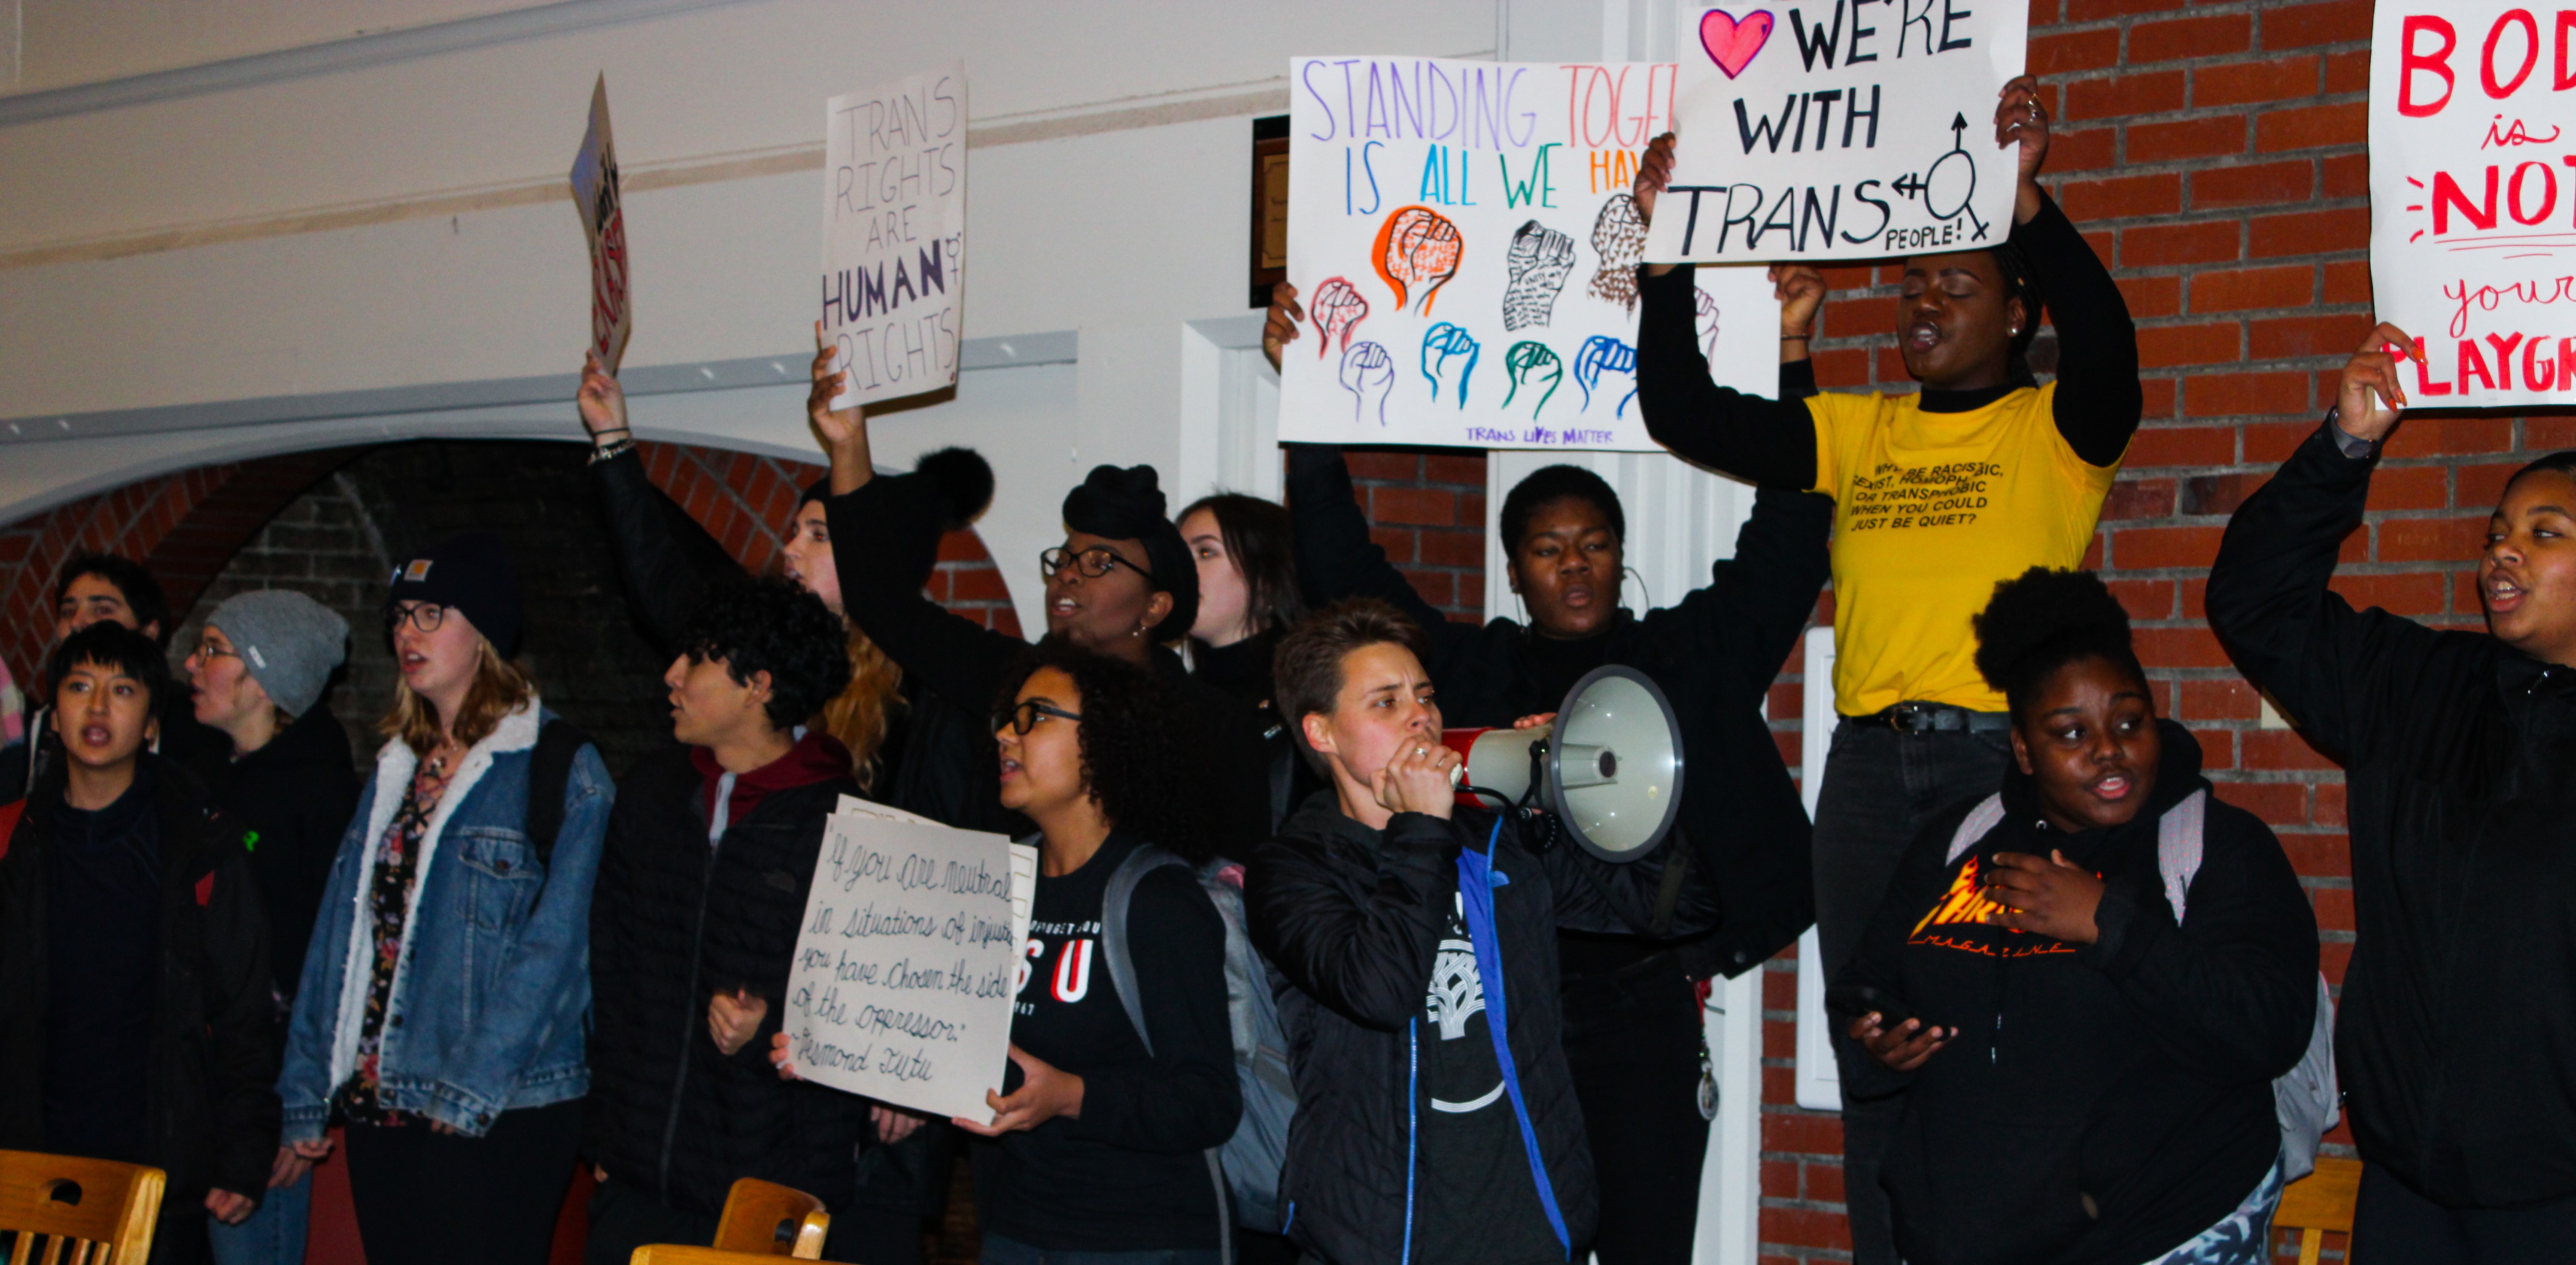 TRANS
RIGHTS
ARE
HUMAN
RIGHTS
STANDING TOGET
IS ALL WE HAV
TRANS LIVES MATTER
WE'RE
WITH
TRANS
PEOPLE!
BOD
is
NOT
your
PLAYGR
WHY BE RACIST,
SEXIST, HOMOPHOBIC,
OR TRANSPHOBIC
WHEN YOU COULD
JUST BE QUIET?
"if you are neutral
in situations of injustice
you have chosen the side
of the oppressor."
~Desmond Tutu
SU
MAGAZINE